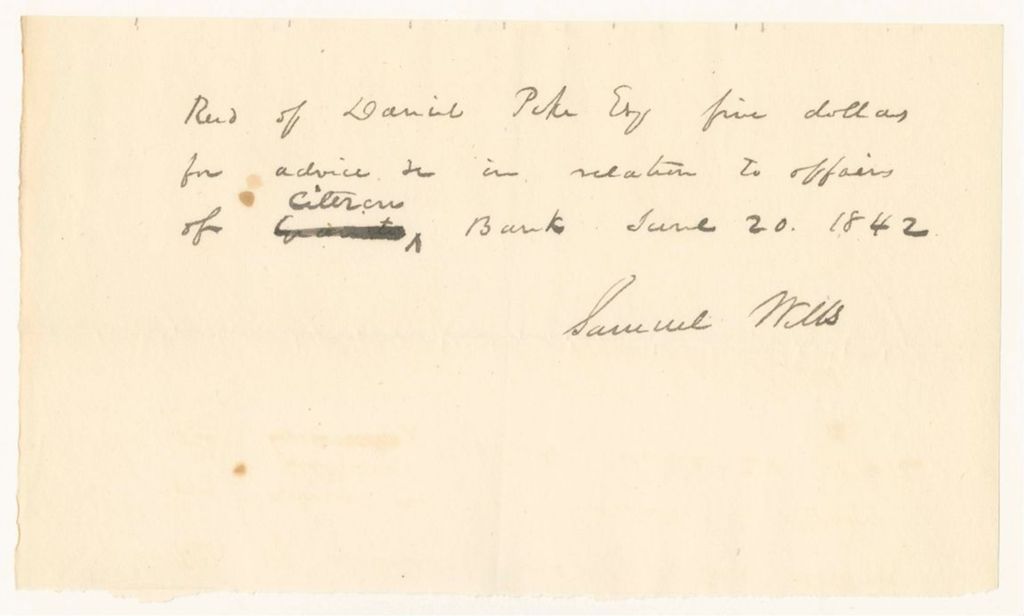 Recd of Daniel Pike Esq five dollars
for advice &c in relation to affairs
of Citizens Bank June 20. 1842
Samuel Wells